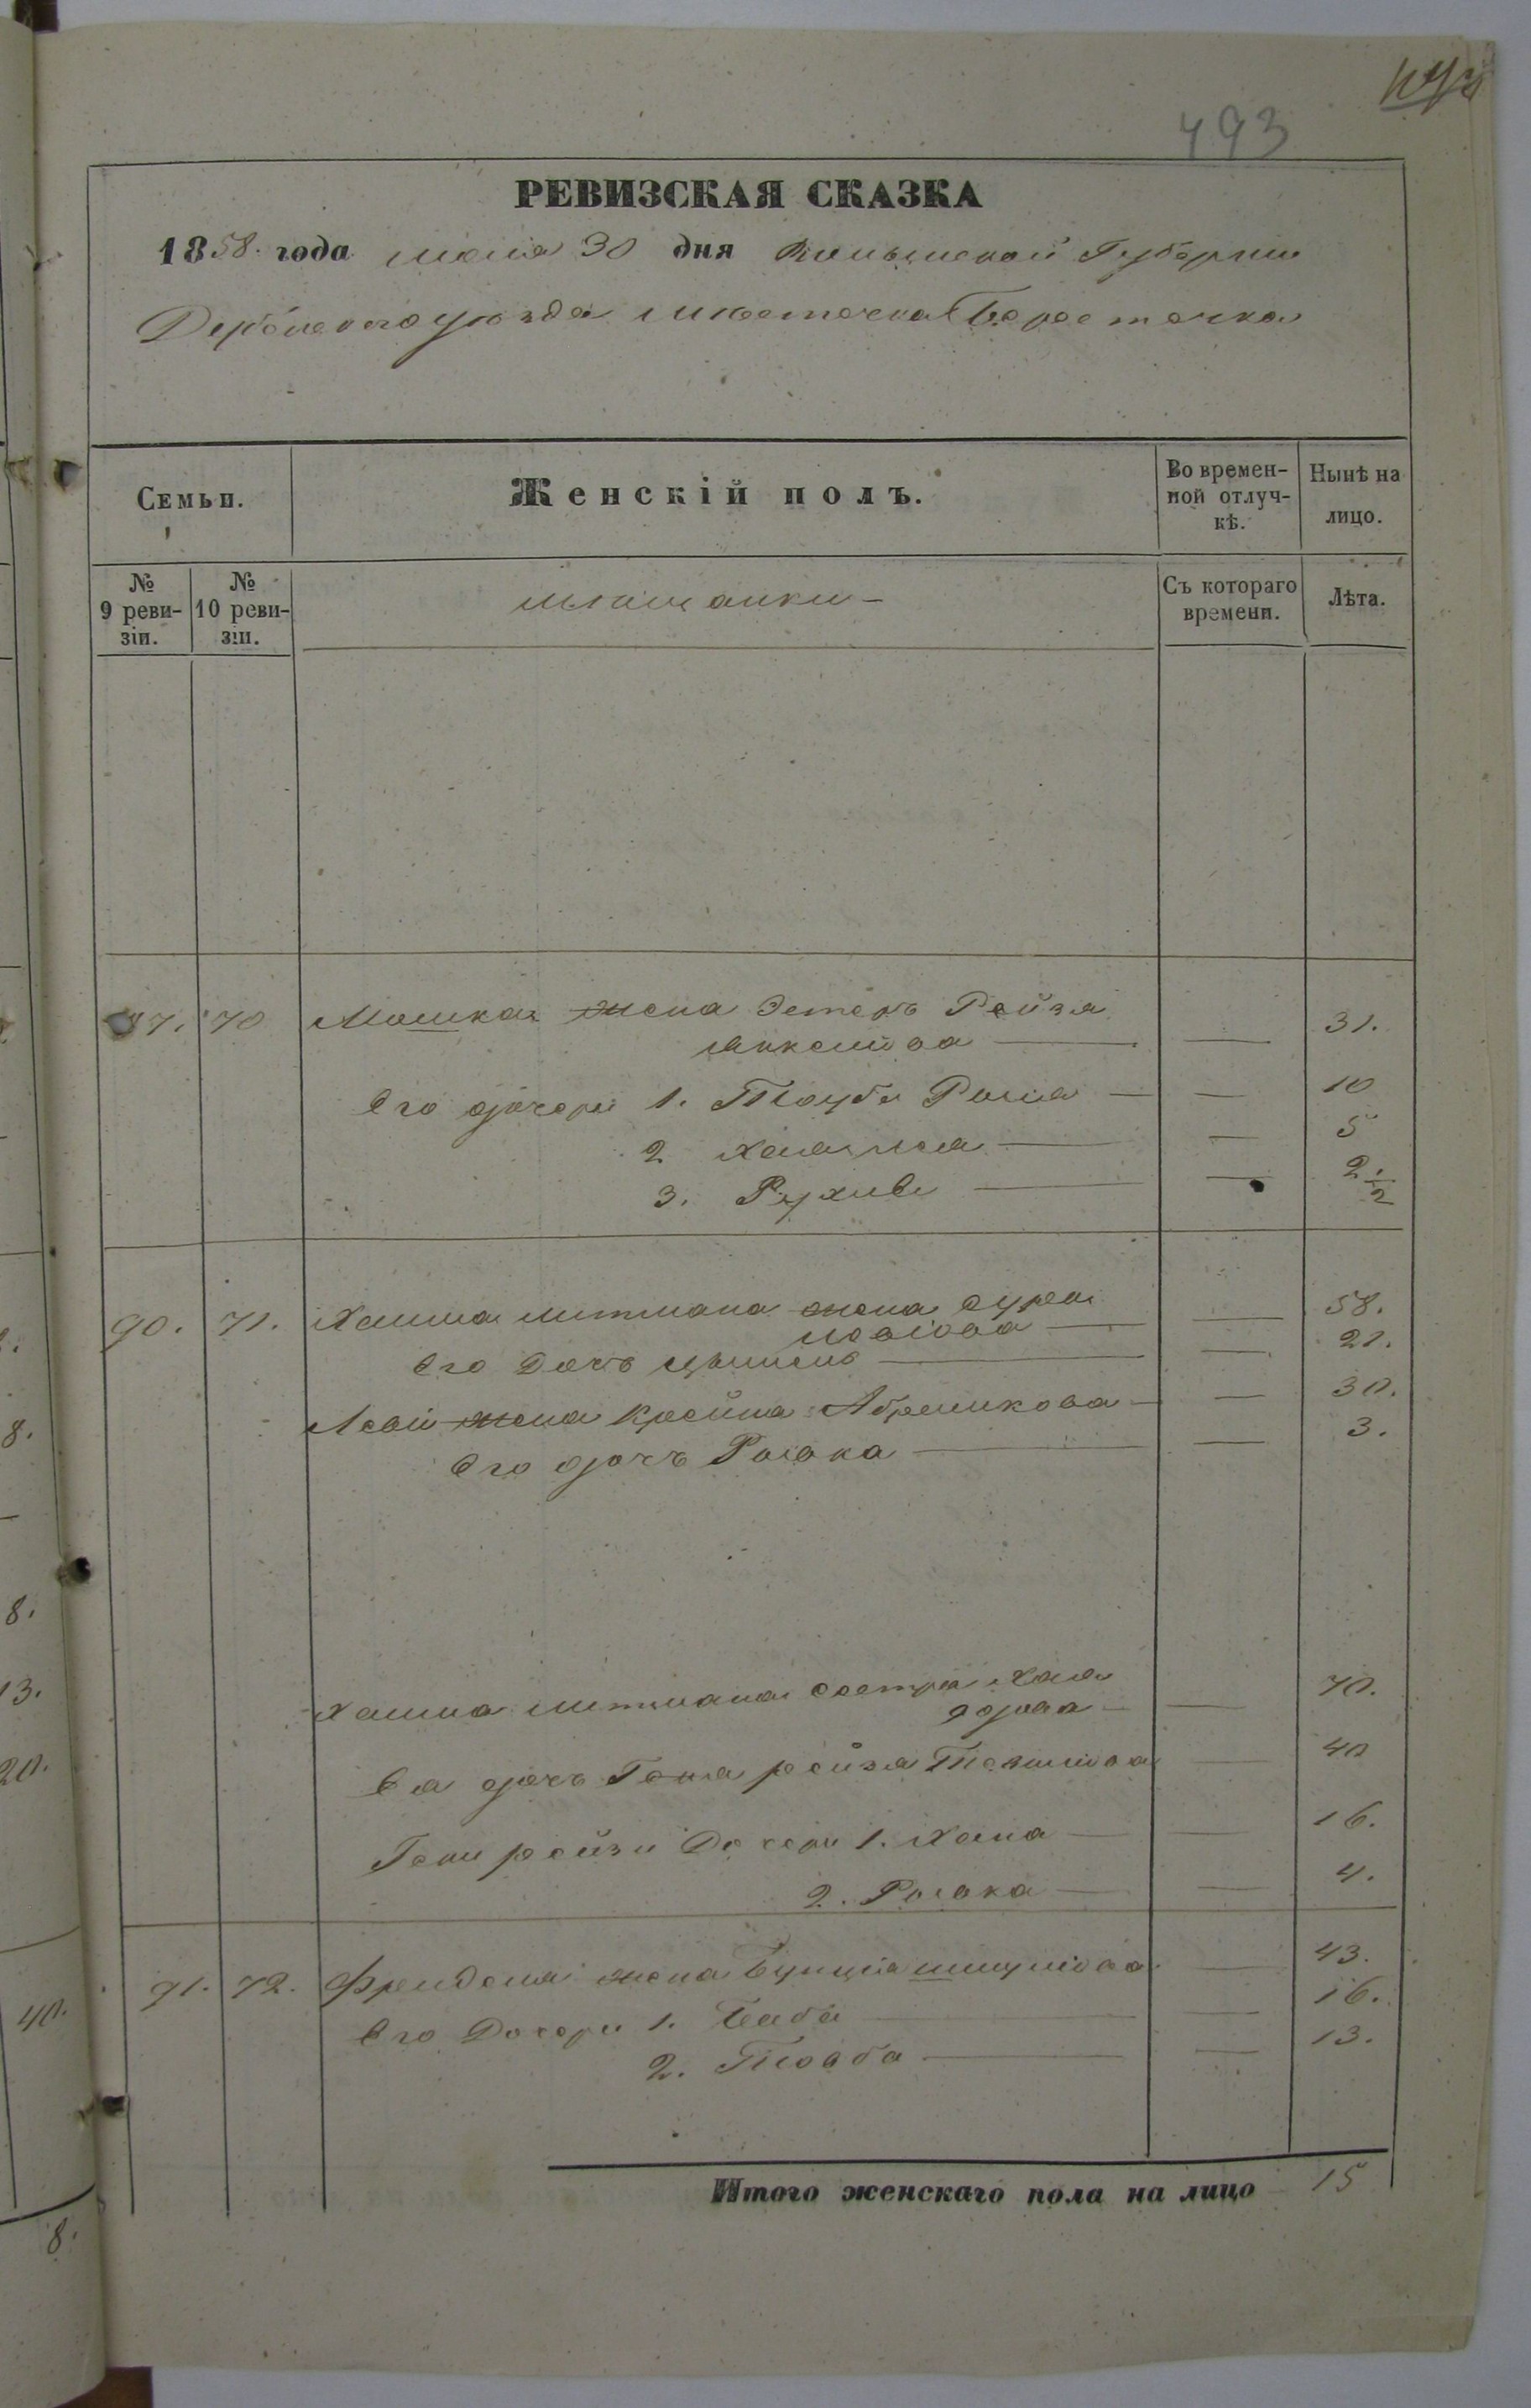 493
РЕВИЗСКАЯ СКАЗКА
1858. года маия 30 дня Волынской Губернии
Дубенскаго уѣзда мѣстечка Берестечка
Семьи.
Женскій полъ.
Во времен-
ной отлуч-
кѣ.
Нынѣ на
лицо.
№
9 реви-
зіи.
№
10 реви-
зіи.
мѣщанки -
Съ котораго
времени.
Лѣта.
87. 70 Мошка жена Эстеръ Рейзя
31.
Его дочери 1. Тауба Рыся 10
2 Халя 5
3. Рухля 2 1/2
90. 71. Хаима жена Сура 58.
Его дочь 21.
Лейви жена Крейна Абрамкова 30.
Его дочь Ривка 3.
Хаима сестра Хая 70.
вдова
Ея дочь Геня рейзя 40
Гени рейзи Дочери 1. Хана 16.
2. Ривка 4.
91. 72. Фройдели жена Шмулiова 43.
Его Дочери 1. 16.
2. 13.
Итого женскаго пола на лицо 15
8.
8.
13.
20.
40.
8.